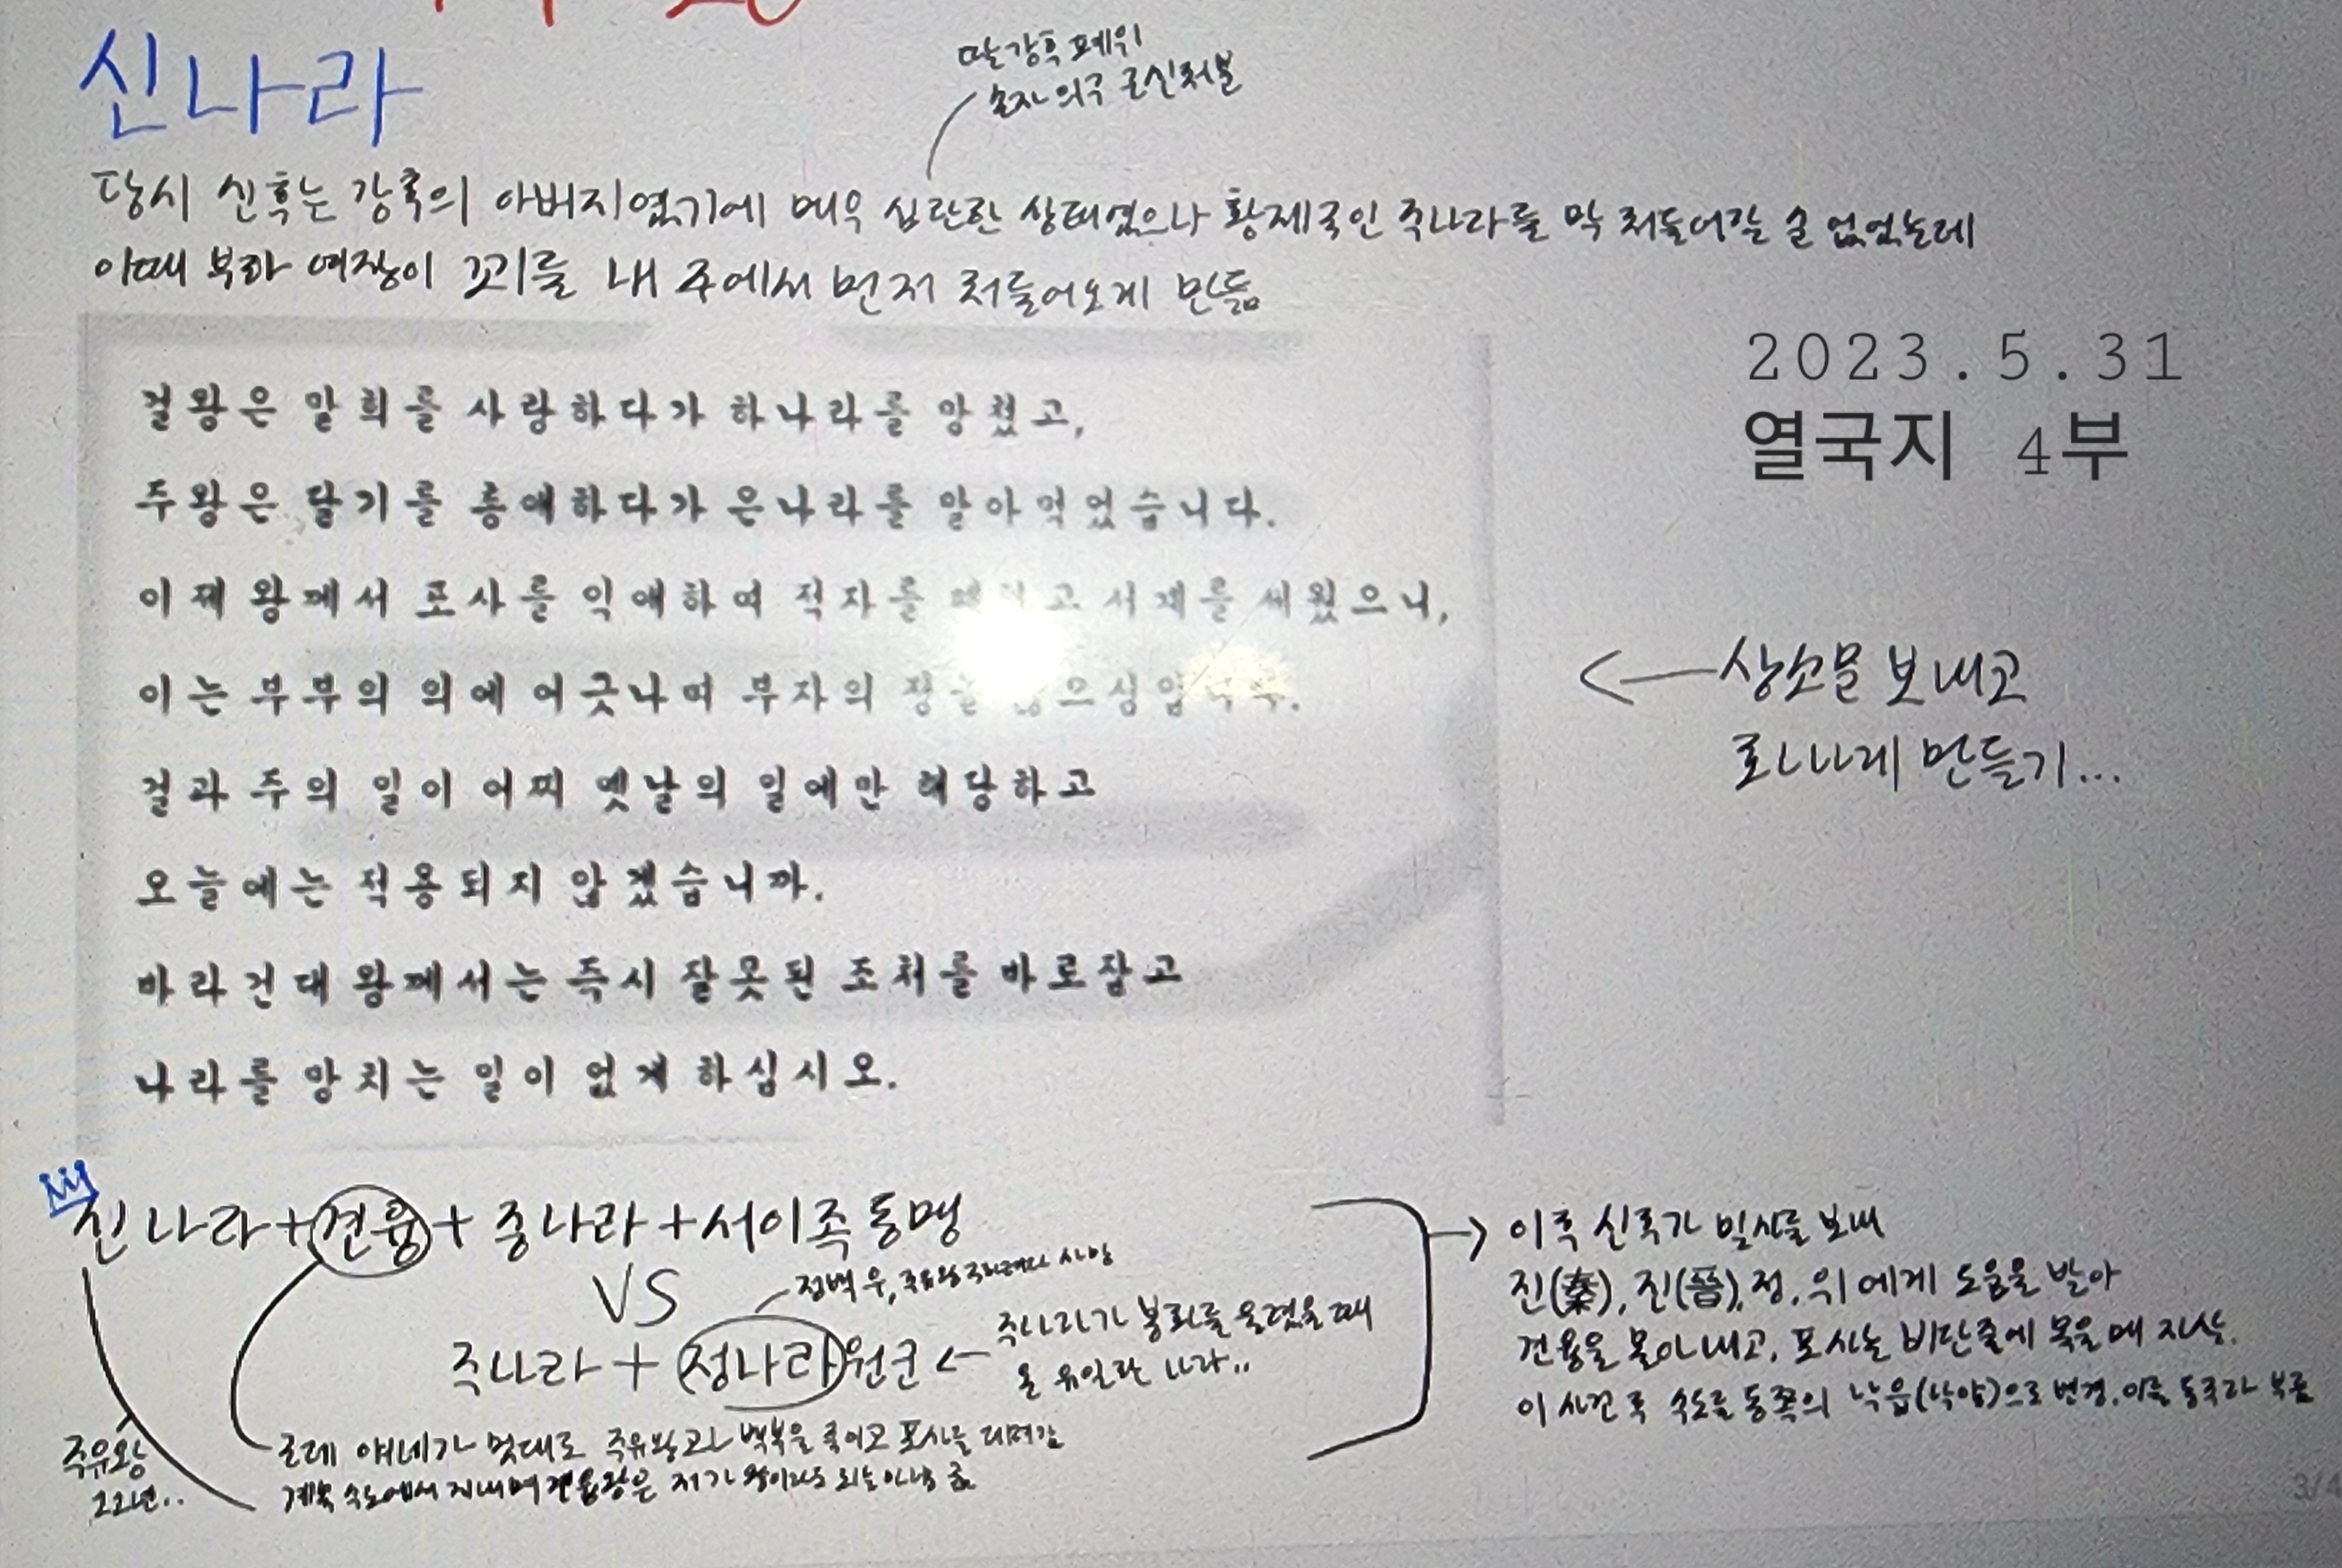 신나라
딸 강후 폐위
손자 의구 근신처분
당시 신후는 강후의 아버지였기에 매우 심란한 상태였으나 황제국인 주나라를 막 쳐들어갈 순 없었는데
이때 부하 여장이 꾀를 내 주에서 먼저 쳐들어오게 만듦
걸왕은 말희를 사랑하다가 하나라를 망쳤고,
주왕은 달기를 총애하다가 은나라를 말아먹었습니다.
이제 왕께서 포사를 익애하여 적자를 고 서제를 세웠으니,
이는 부부의 의에 어긋나며 부자의 정을
걸과 주의 일이 어찌 옛날의 일에만 해당하고
오늘에는 적용되지 않겠습니까.
바라건대 왕께서는 즉시 잘못된 조처를 바로잡고
나라를 망치는 일이 없게 하십시오.
2023.5.31
열국지 4부
상소문 보내고
화나게 만들기...
신나라+견융+증나라+서이족 동맹
VS
정백 우, 주유왕 사망
주나라+정나라 원군
주나라가 봉화를 올렸을 때
온 유일한 나라..
근데 얘네가 멋대로 주유왕과 백복을 죽이고 포사를 데려감
계속 수도에서 지내며 견융왕은 지가 왕이라도 되는 마냥 굼
주유왕
11년..
이후 신후가 밀사를 보내
진(秦), 진(晉), 정, 위에게 도움을 받아
견융을 몰아내고, 포사는 비단줄에 목을 매 자살.
이 사건 후 수도를 동쪽의 낙읍(낙양)으로 변경. 이를 동주라 부름
3/4